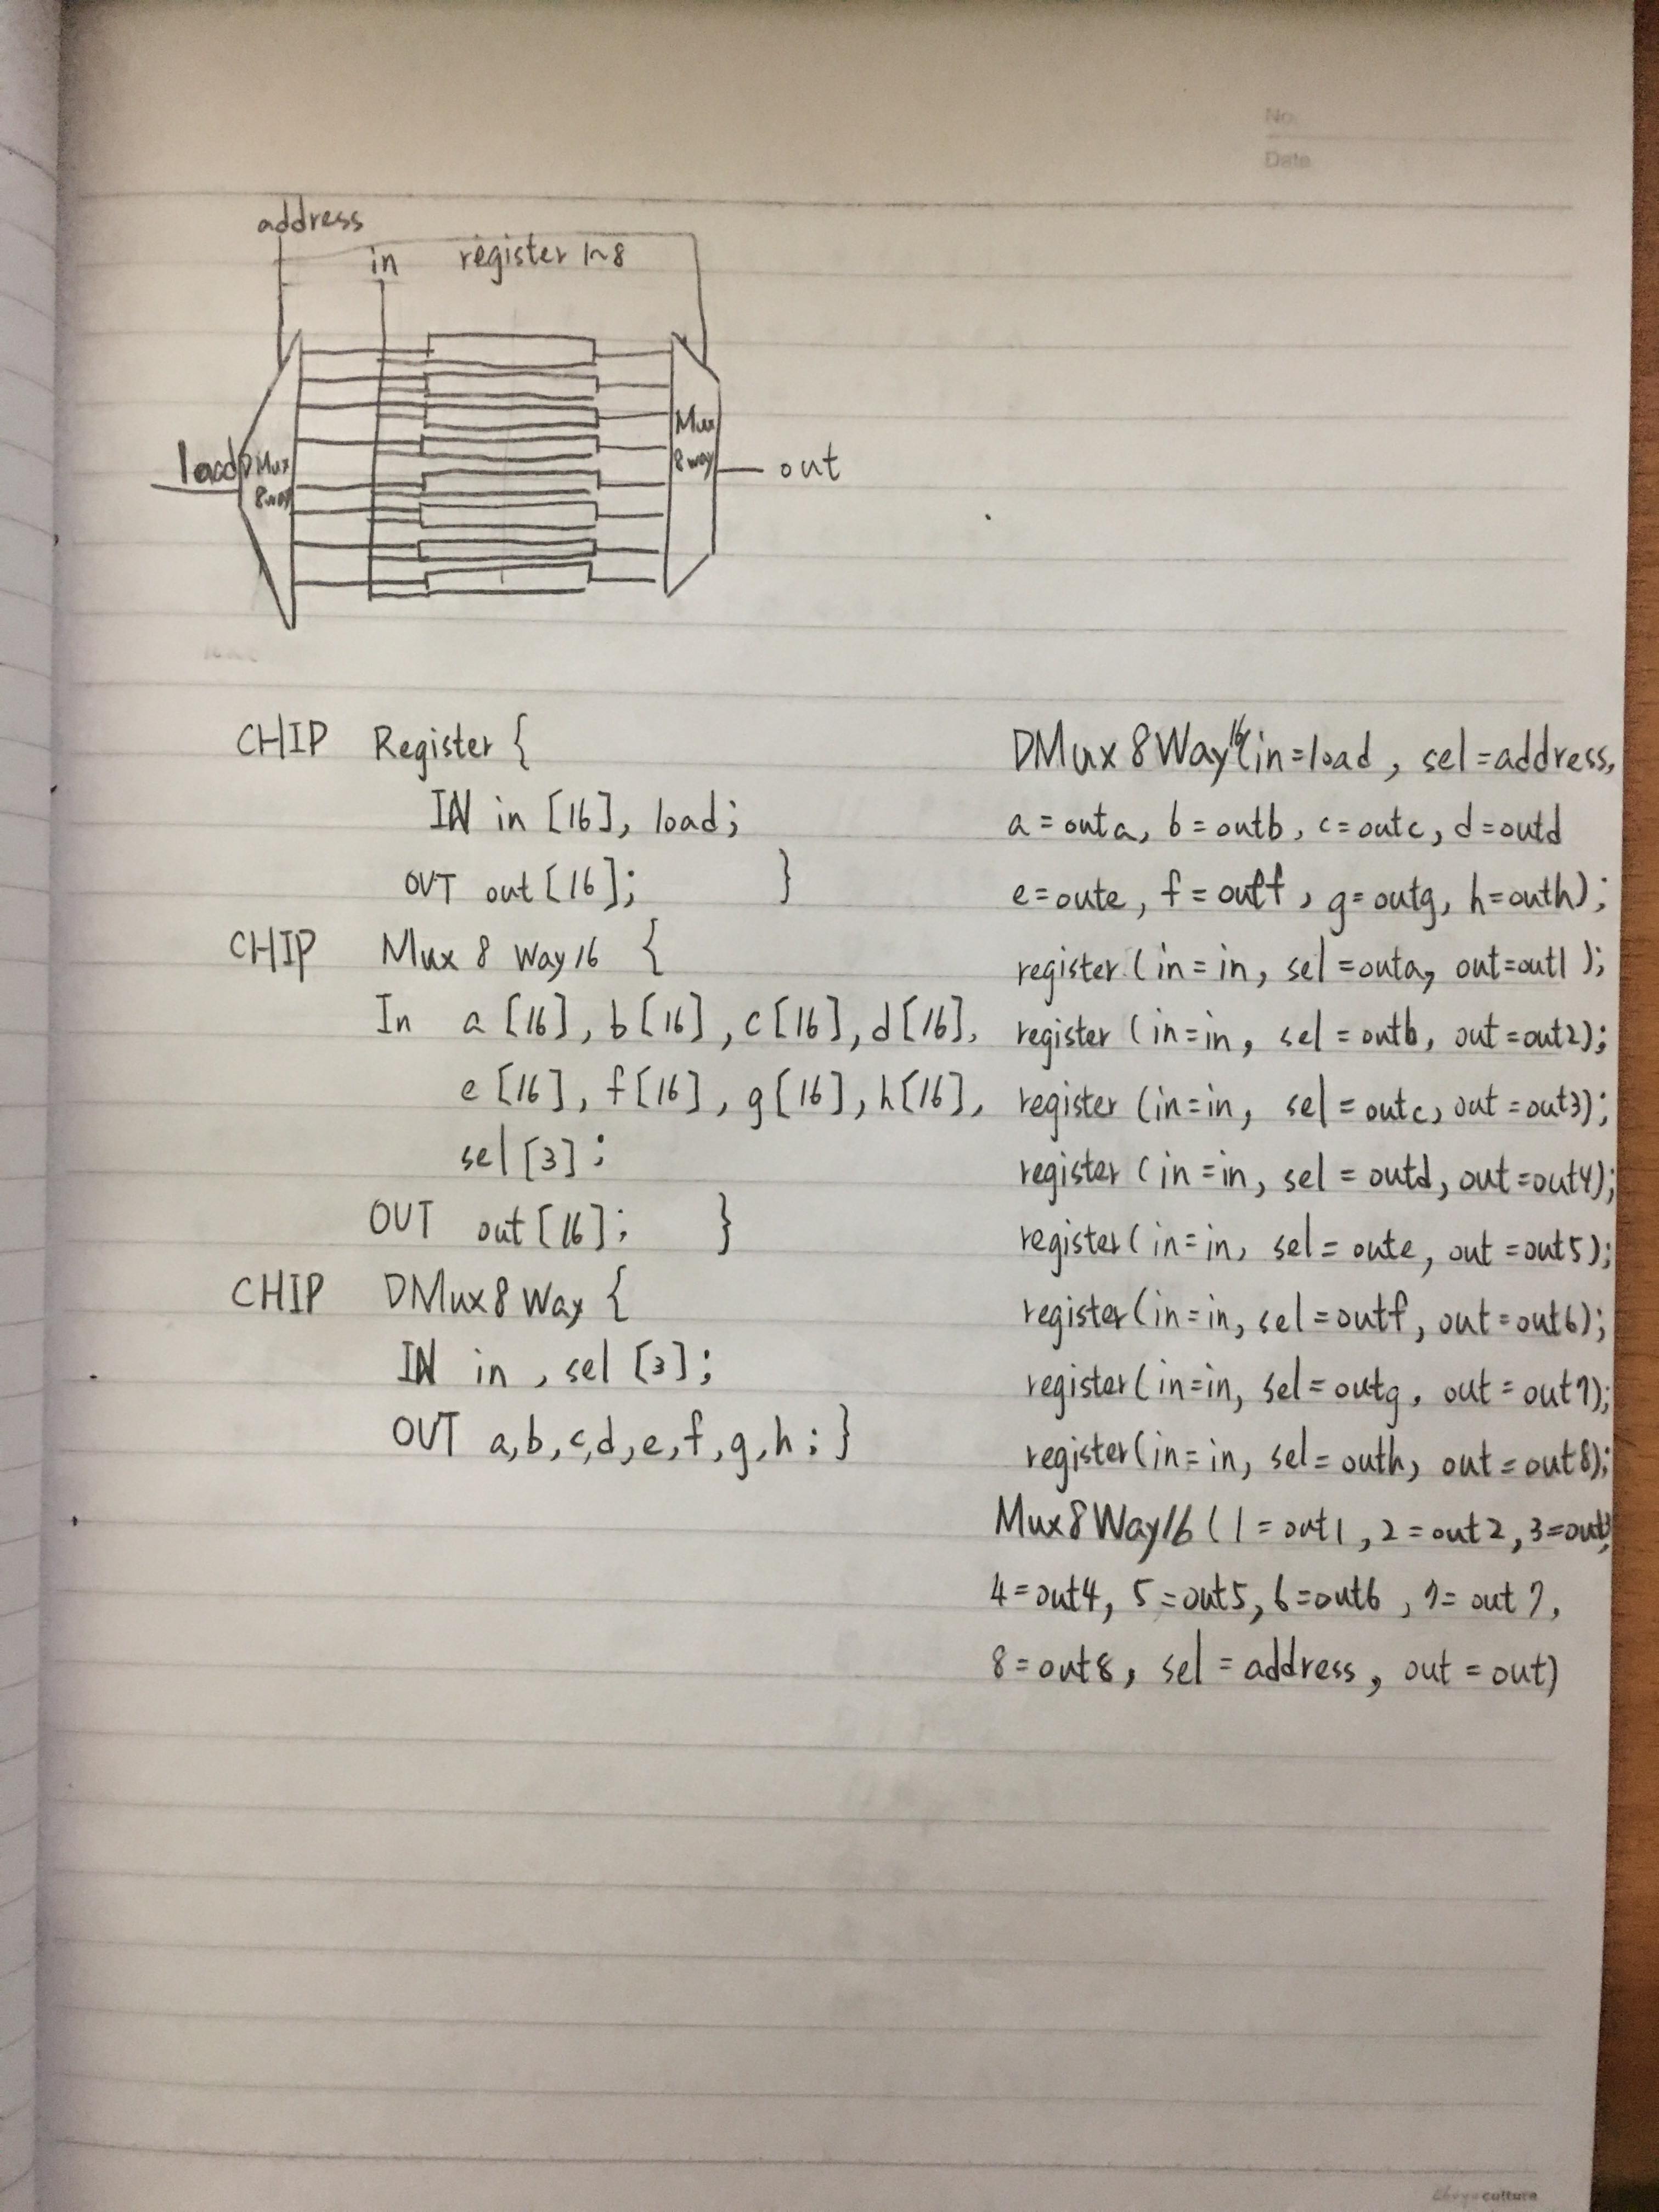 No.
Date
address
in register 1~8
load DMux 8way
Mux 8way
out
CHIP Register {
IN in [16], load;
OUT out [16]; }
CHIP Mux 8 Way 16 {
In a [16], b [16], c [16], d [16],
e [16], f [16], g [16], h [16],
sel [3];
OUT out [16]; }
CHIP DMux 8 Way {
IN in, sel [3];
OUT a, b, c, d, e, f, g, h; }
DMux 8 Way16(in=load, sel=address,
a=outa, b=outb, c=outc, d=outd
e=oute, f=outf, g=outg, h=outh);
register (in=in, sel=outa, out=out1);
register (in=in, sel=outb, out=out2);
register (in=in, sel=outc, out=out3);
register (in=in, sel=outd, out=out4);
register (in=in, sel=oute, out=out5);
register (in=in, sel=outf, out=out6);
register (in=in, sel=outg, out=out7);
register (in=in, sel=outh, out=out8);
Mux8Way16 (1=out1, 2=out2, 3=out3,
4=out4, 5=out5, 6=out6, 7=out7,
8=out8, sel=address, out=out)
culture